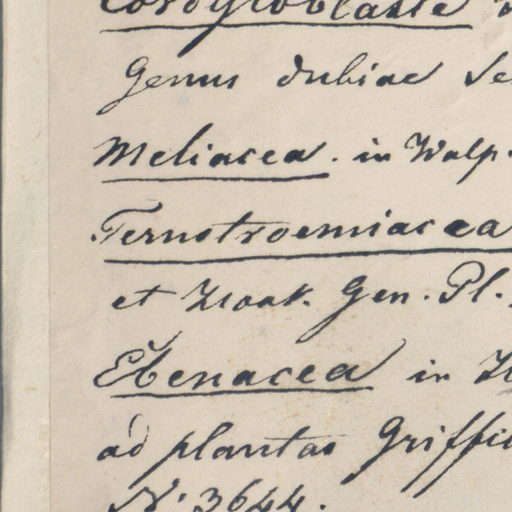 Cordyloblaste
Genus dubiae
Meliacea. in Walp.
Ternstroemiacea
et Hook. Gen. Pl.
Ebenacea in
ad plantas Griffi
N. 3644.